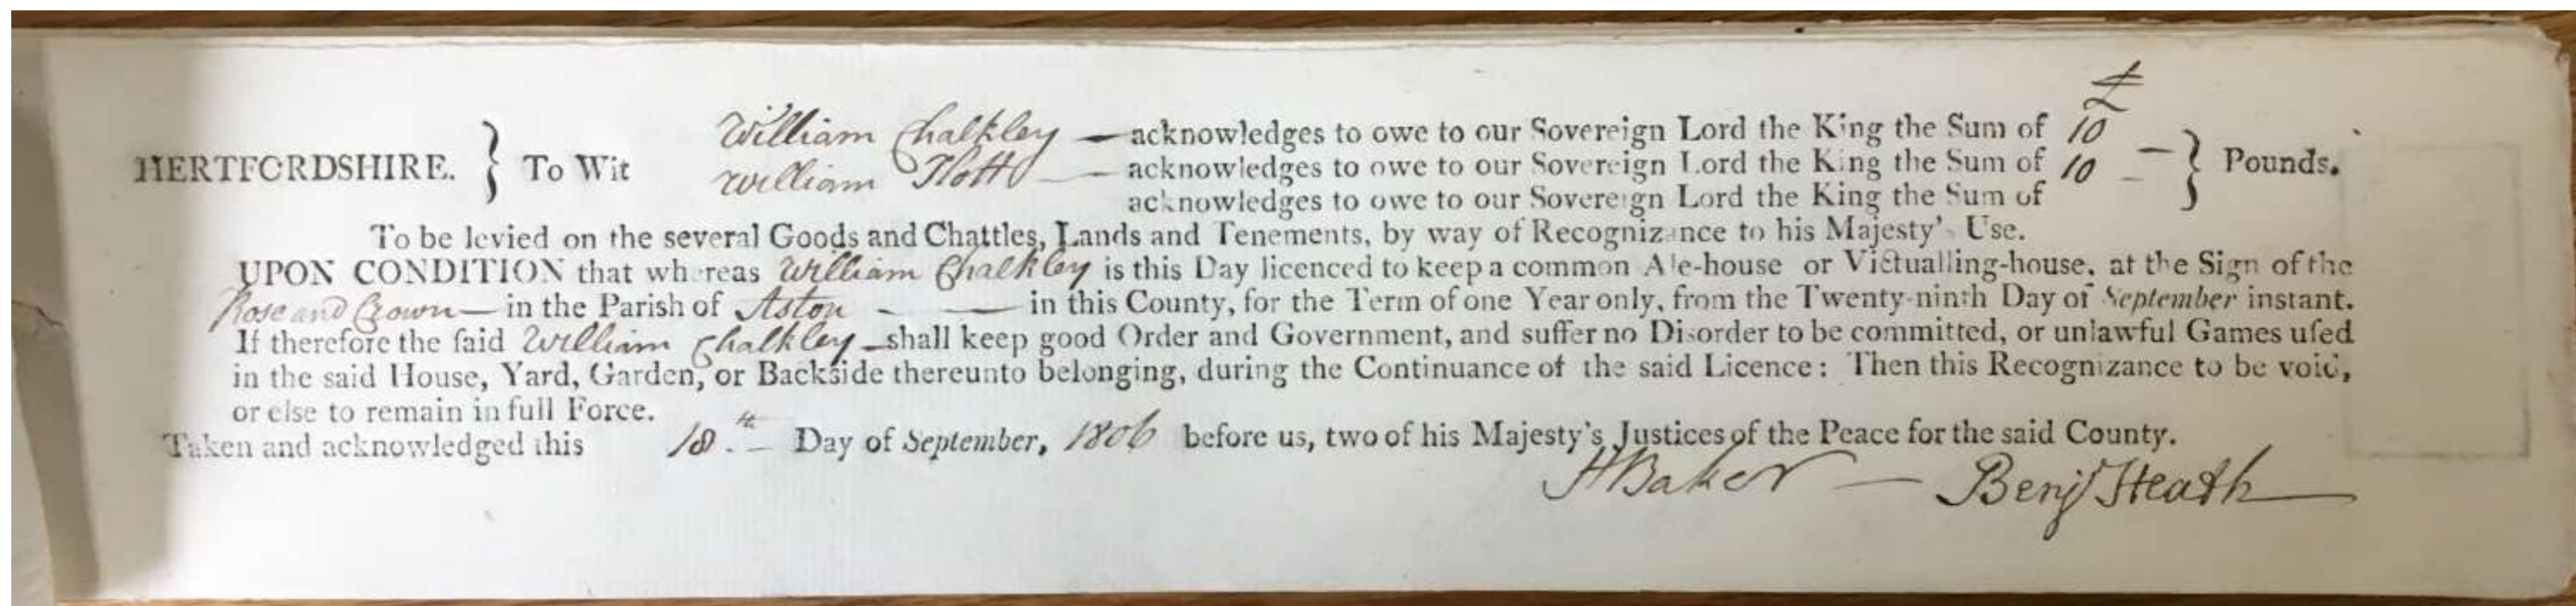 £
William Chalkley — acknowledges to owe to our Sovereign Lord the King the Sum of 10
HERTFORDSHIRE. } To Wit William Plott — acknowledges to owe to our Sovereign Lord the King the Sum of 10 — } Pounds.
acknowledges to owe to our Sovereign Lord the King the Sum of
To be levied on the several Goods and Chattles, Lands and Tenements, by way of Recognizance to his Majesty's Use.
UPON CONDITION that whereas William Chalkley is this Day licenced to keep a common Ale-house or Victualling-house, at the Sign of the
Rose and Crown — in the Parish of Aston — in this County, for the Term of one Year only, from the Twenty-ninth Day of September instant.
If therefore the ſaid William Chalkley — shall keep good Order and Government, and suffer no Disorder to be committed, or unlawful Games uſed
in the said House, Yard, Garden, or Backside thereunto belonging, during the Continuance of the said Licence: Then this Recognizance to be void,
or else to remain in full Force.
Taken and acknowledged this 18th Day of September, 1806 before us, two of his Majesty's Justices of the Peace for the said County.
H Baker — Benj Heath